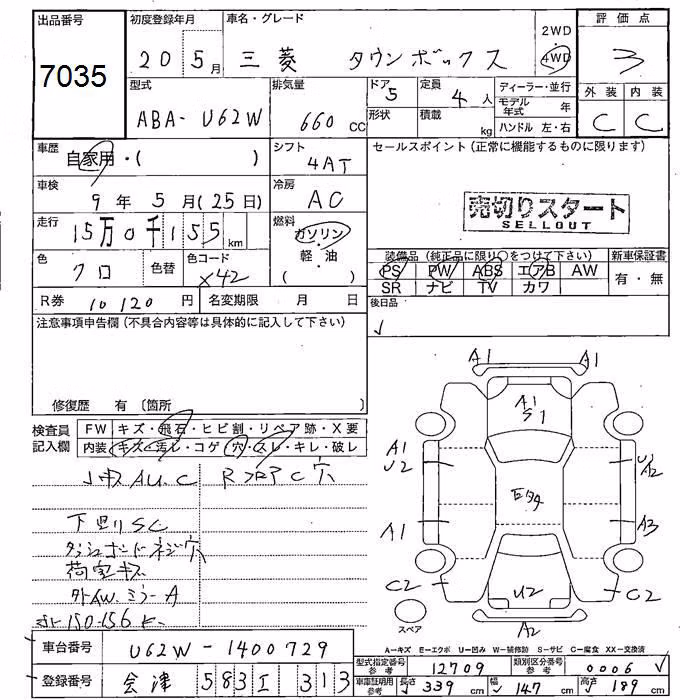 出品番号 初度登録年月 車名・グレード 2WD 評価点
7035 20 5月 三菱 タウンボックス 4WD 3
型式 排気量 ドア 5 定員 4人 ディーラー・並行 外装 内装
ABA-U62W 660cc 形状 積載 kg モデル年式 年 C C
ハンドル 左・右
車歴 自家用・( ) シフト 4AT セールスポイント(正常に機能するものに限ります)
車検 9年5月(25日) 冷房 AC 売切りスタート
SELLOUT
走行 15万0千155km 燃料 ガソリン・軽油 ( )
装備品(純正品に限り○をつけて下さい) 新車保証書
色 クロ 色替 色コード X42 PS PW ABS エアB AW 有・無
SR ナビ TV カワ
R券 10120円 名変期限 月 日 後日品
注意事項申告欄(不具合内容等は具体的に記入して下さい)
修復歴 有 〔箇所
検査員記入欄 FW キズ・飛石・ヒビ割・リペア跡・X要
内装 キズ・汚レ・コゲ・穴・スレ・キレ・破レ
A1 A1
A1 S1
A1 U2 U1 A2
A1 A3
C2 U2 C2
A2
スペア
下廻りSC
ダッシュボードネジ穴
荷室キズ
外AW.ミラーA
A-キズ E-エクボ U-凹み W-補修跡 S-サビ C-腐食 XX-交換済
車台番号 U62W-1400729
型式指定番号 参考 12709 類別区分番号 参考 0006
登録番号 会津 583 エ 313
車庫証明用参考 長さ 339cm 幅 147cm 高さ 189cm